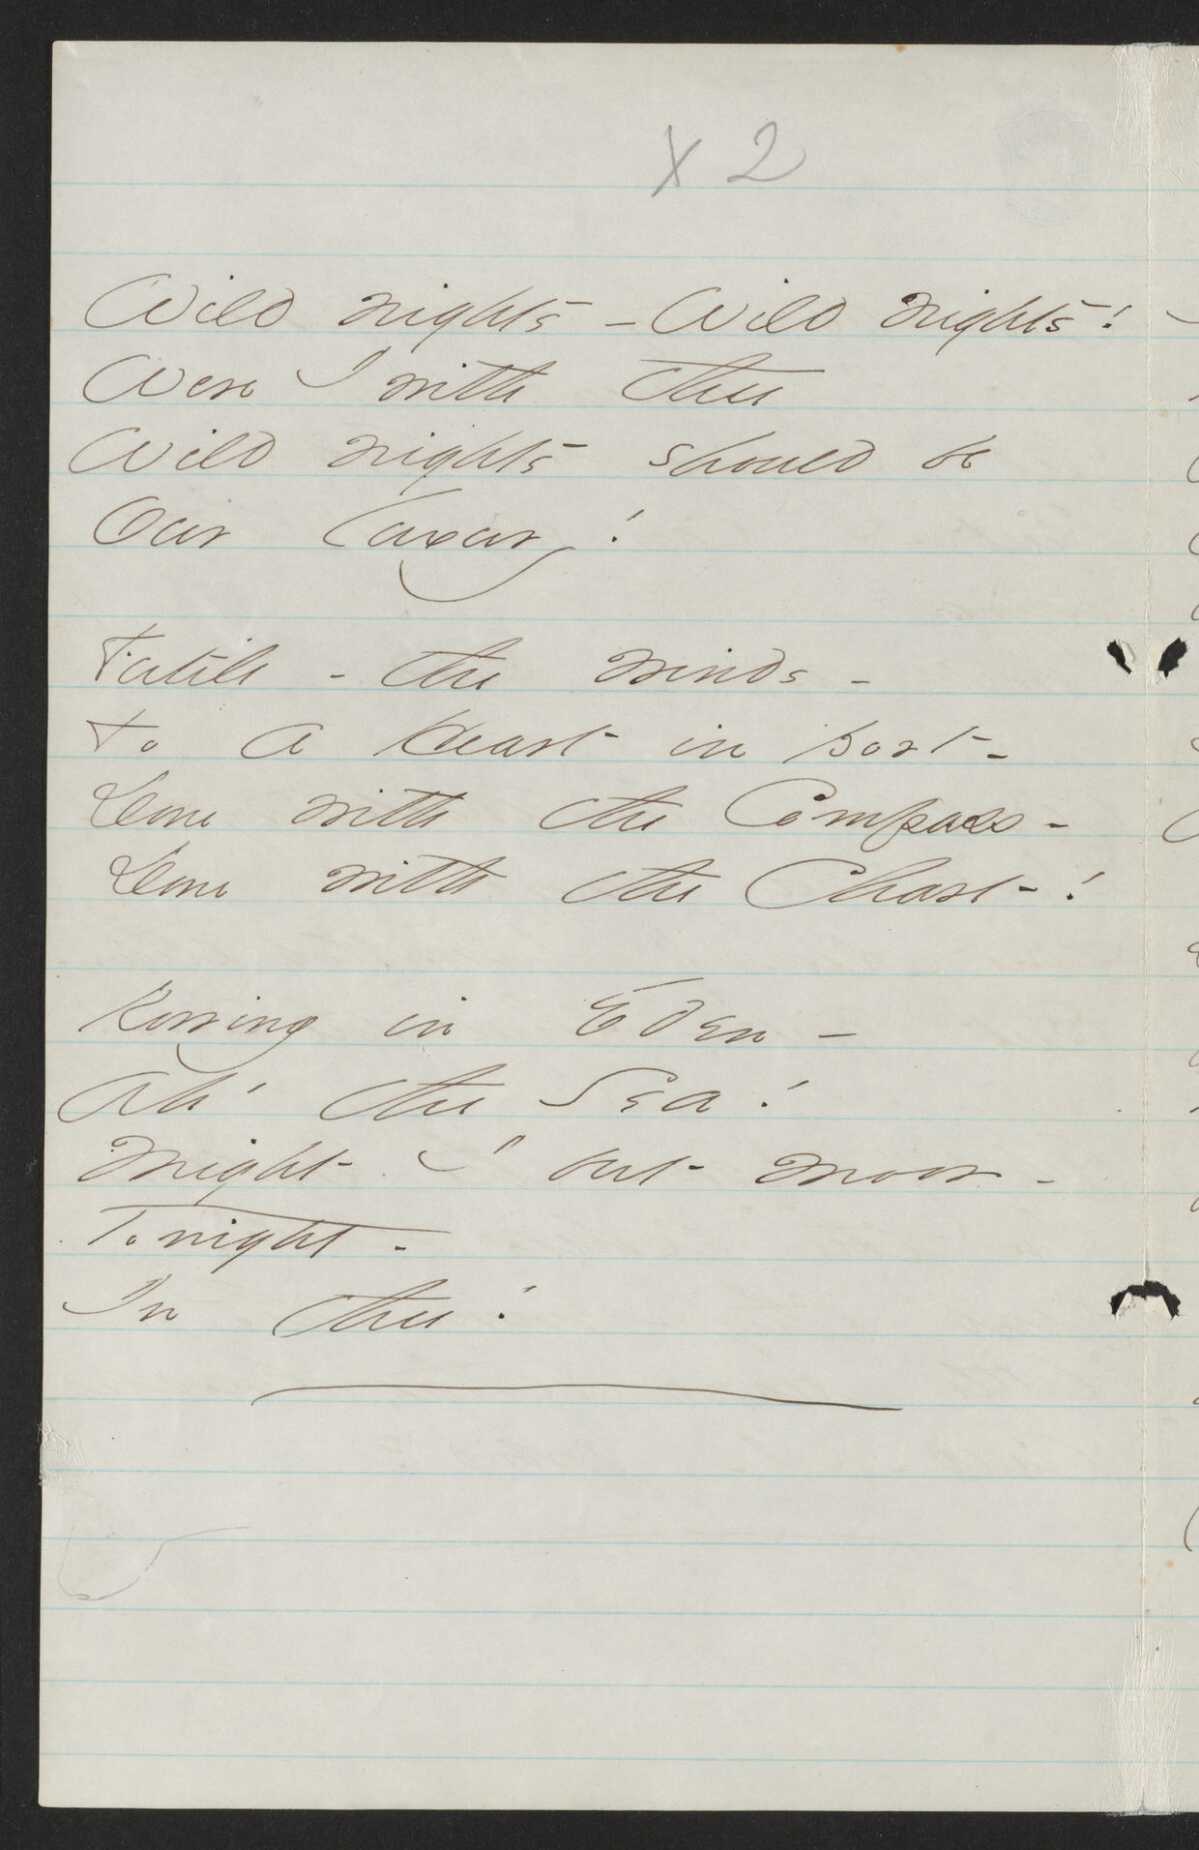 X 2
Wild nights - Wild nights!
Were I with thee
Wild nights should be
Our luxury!
Futile - the winds -
To a Heart in port -
Done with the Compass -
Done with the Chart -!
Rowing in Eden -
Ah' the Sea!
Might I but moor -
Tonight -
In thee!